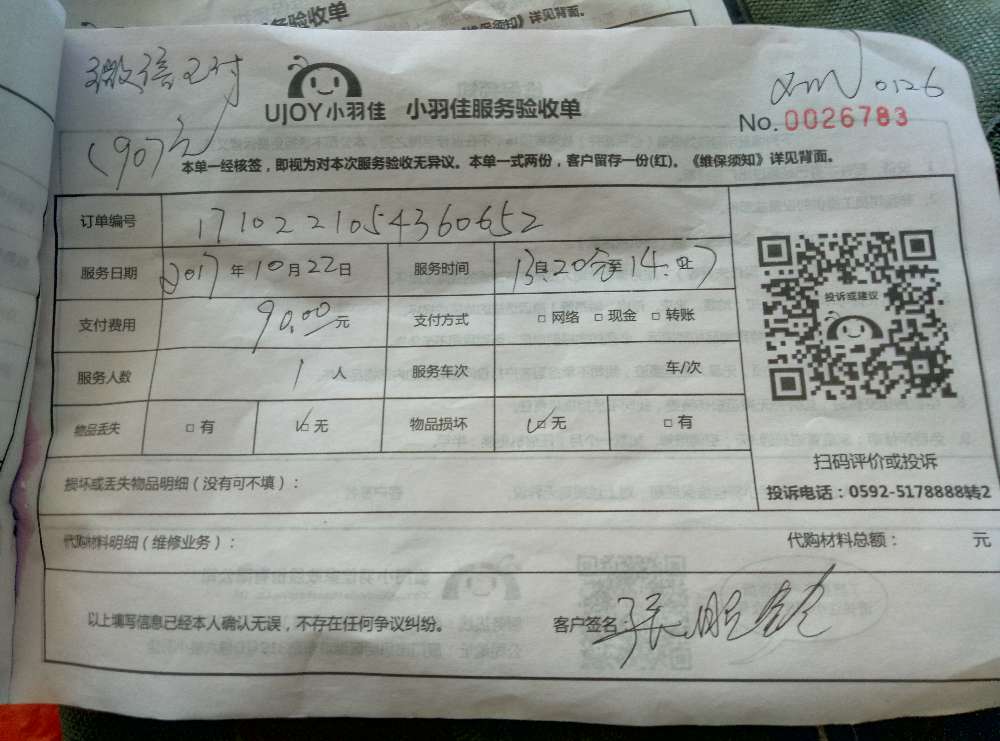 验收单
《维保须知》详见背面。
微信支付
(90)元
UJOY小羽佳 小羽佳服务验收单
xm 0126
No. 0026783
本单一经核签，即视为对本次服务验收无异议。本单一式两份，客户留存一份(红)。《维保须知》详见背面。
订单编号 1710221054360652
服务日期 2017年10月22日 服务时间
支付费用 90.00元 支付方式 □网络 □现金 □转账
服务人数 1人 服务车次 车/次
物品丢失 □有 ☑无 物品损坏 ☑无 □有
投诉或建议
扫码评价或投诉
投诉电话：0592-5178888转2
损坏或丢失物品明细（没有可不填）：
代购材料明细（维修业务）： 代购材料总额： 元
以上填写信息已经本人确认无误，不存在任何争议纠纷。 客户签名： 张